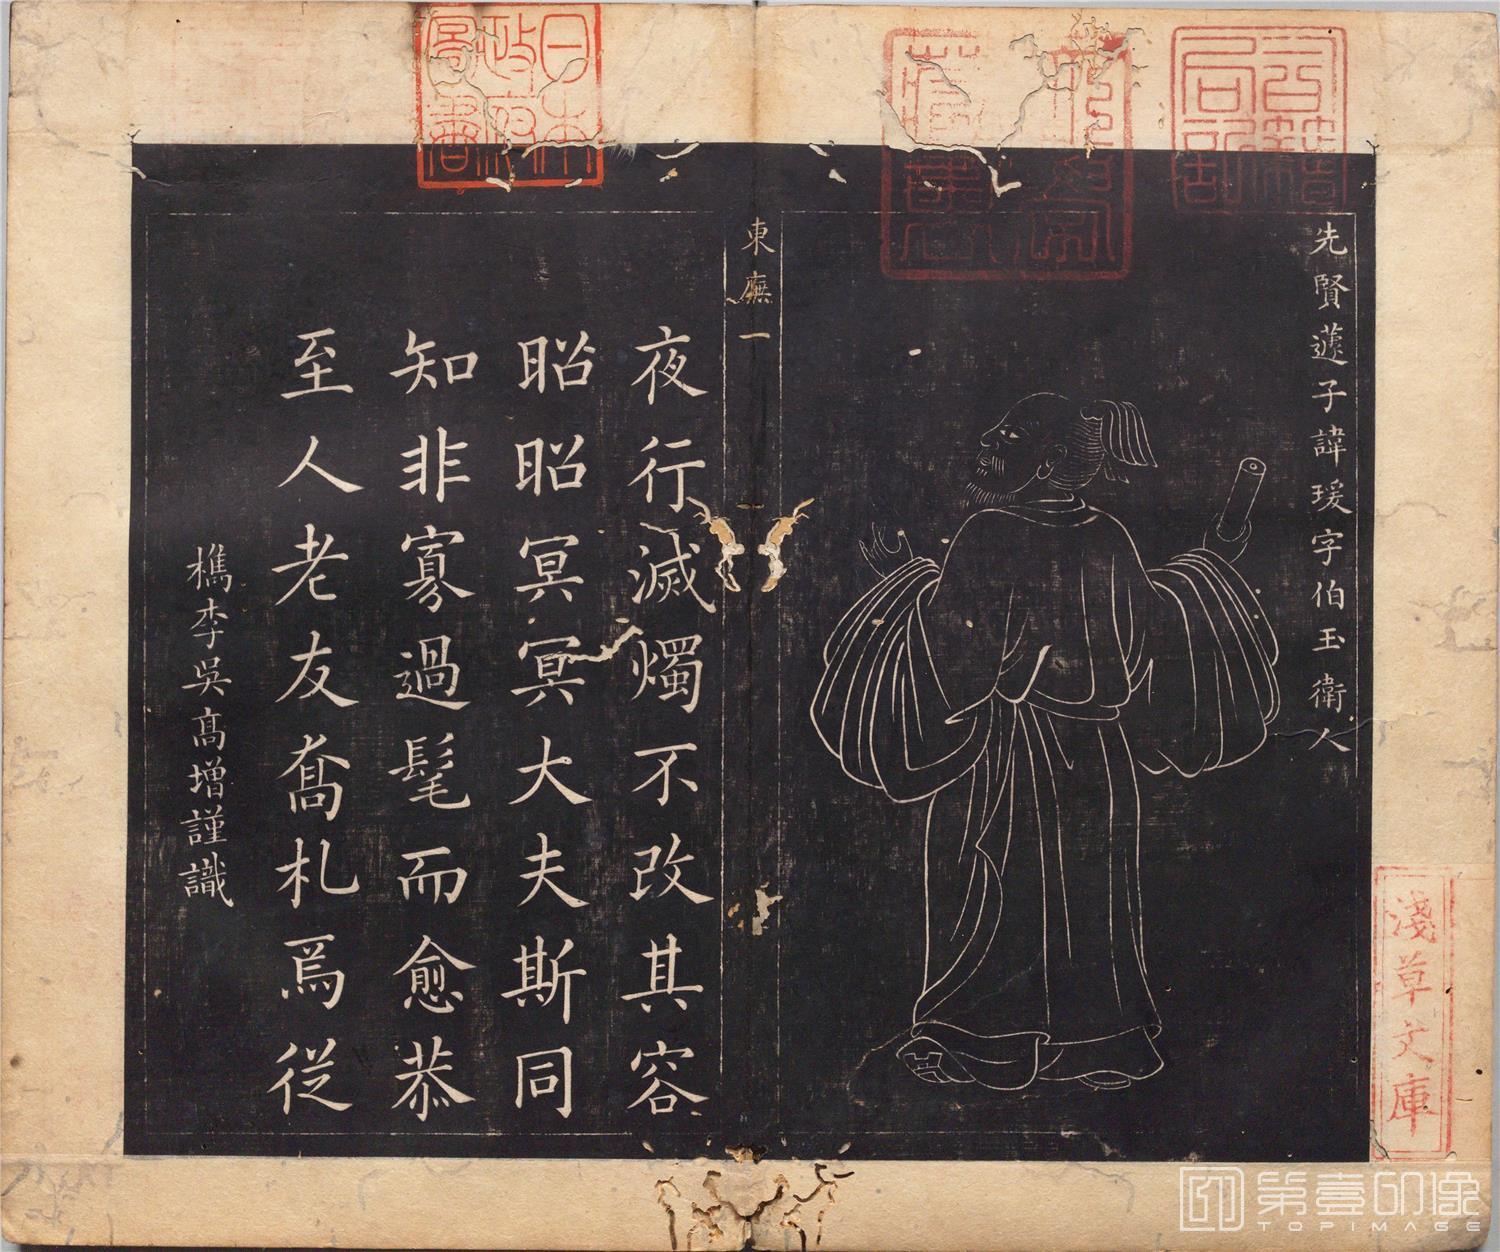 先賢蘧子諱瑗字伯玉衛人
東廡一
夜行滅燭不改其容
昭昭冥冥大夫斯同
知非寡過髦而愈恭
至人老友喬札爲從
檇李吳高增謹識
日本政府圖書
淺草文庫
第壹印像
TOPIMAGE